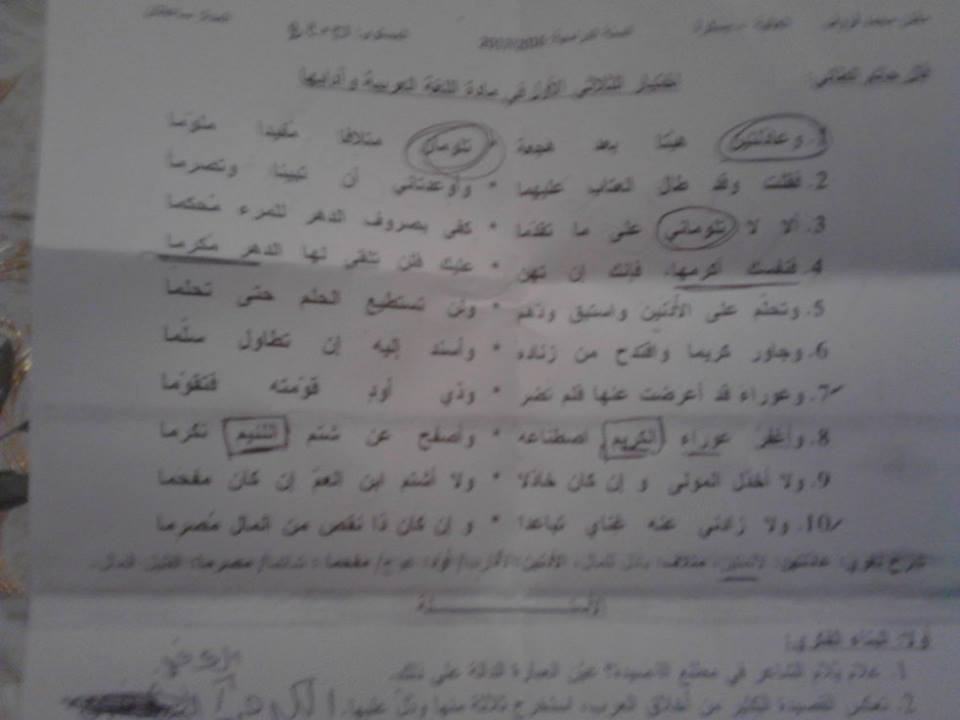 اختبار الثلاثي الأول في مادة اللغة العربية وآدابها
1. وعاذلتين هبتا بعد هجعة * تلومان متلافا مفيدا ملوما
2. فقلت وقد طال العتاب عليهما * وأوعدتاني أن تبينا وتصرما
3. ألا لا تلوماني على ما تقدما * كفى بصروف الدهر للمرء محكما
4. فنفسك أكرمها، فإنك إن تهن * عليك فلن تلقى لها الدهر مكرما
5. وتحلم على الأدنين واستبق ودهم * ولن تستطيع الحلم حتى تحلما
6. وجاور كريما واقتدح من زناده * وأسند إليه إن تطاول سلما
7. وعوراء قد أعرضت عنها فلم تضر * وذي أود قومته فتقوما
8. وأغفر عوراء الكريم اصطناعه * وأصفح عن شتم اللئيم تكرما
9. ولا أخذل المولى و إن كان خاذلا * ولا أشتم ابن العم إن كان مفحما
10. ولا زادني عنه غناي تباعدا * و إن كان ذا نقص من المال مصرما
شرح لغوي: عاذلتين: لائمتين، متلاف: باذل للمال، الأدنين: الأقارب/ أود: عوج/ مفحما: شاتما/ مصرما: القليل المال.
أولا: البناء الفكري:
1. علام يلام الشاعر في مطلع القصيدة؟ عين العبارة الدالة على ذلك.
2. تعكس القصيدة الكثير من أخلاق العرب، استخرج ثلاثة منها ودل عليها.